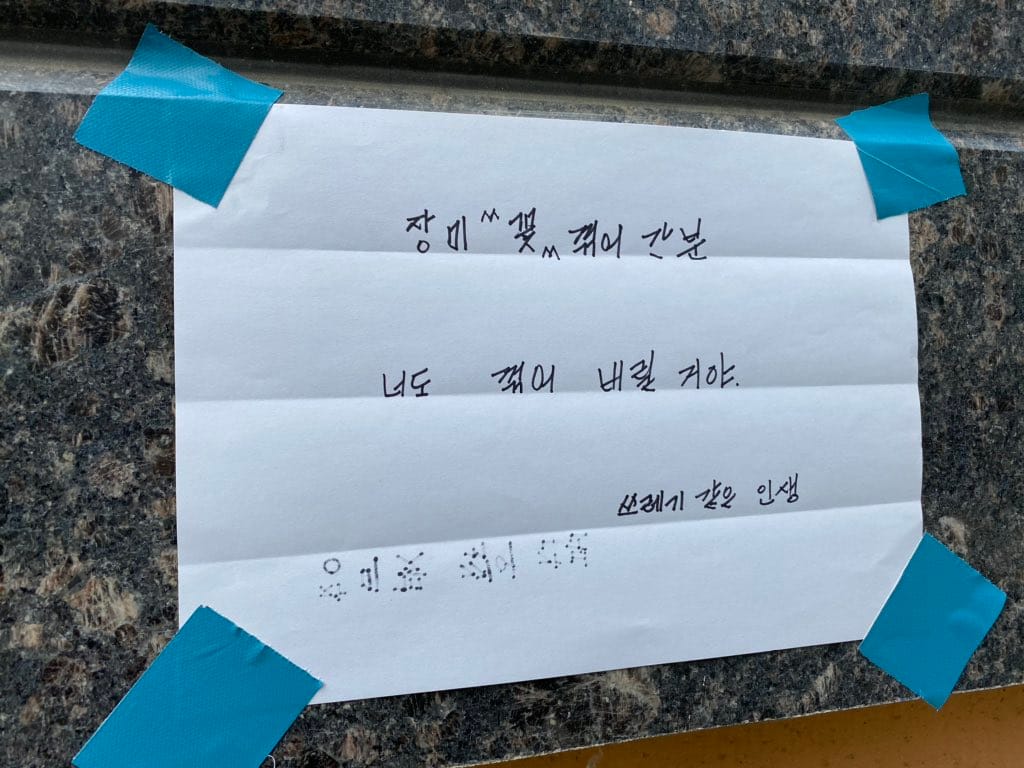 장미 꽃 꺾어 간분
너도 꺾어 버릴 거야.
쓰레기 같은 인생